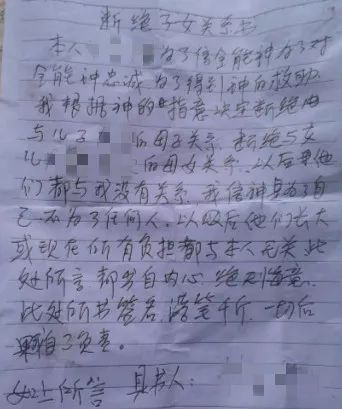 断绝子女关系书
本人 为了信全能神为了对
全能神忠诚为了得到神的救助
我根据神的指意决定断绝由
与儿子 的母子关系.断绝与女
儿 的母女关系.以后其他
们都与我没有关系.我信神只为了自
己.不为了任何人.以级后他们长大
或现在所有负担都与本人无关.此
处所言都出自内心.绝不悔意.
此处所书签名.落笔千斤.一切后
果自己负责。
以上所言 具书人: